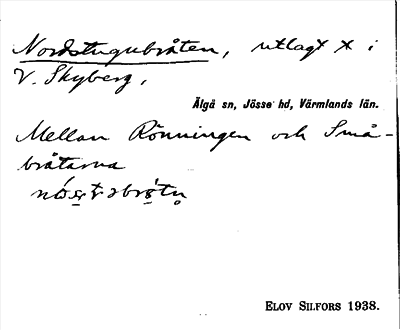 Nordstugubråten, utlagt x i
V. Skyberg.
Älgå sn, Jösse hd, Värmlands län.
Mellan Rönningen och Små-
bråtarna
ELOV SILFORS 1938.